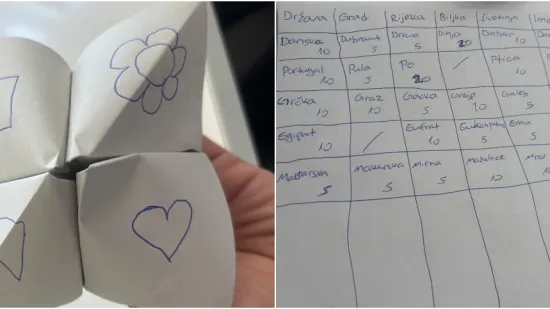 Država Grad Rijeka Biljka Životinja
Danska Dubrovnik Drava Dinja Dabar
10 5 5 20 10
Portugal Pula Po / Ptica
10 5 20 10
Grčka Graz Gacka
10 10 5 10 5
Egipat / Eufrat Eukaliptus Emu
10 10 5 5
Mađarska Makarska Mirna
5 5 5 10